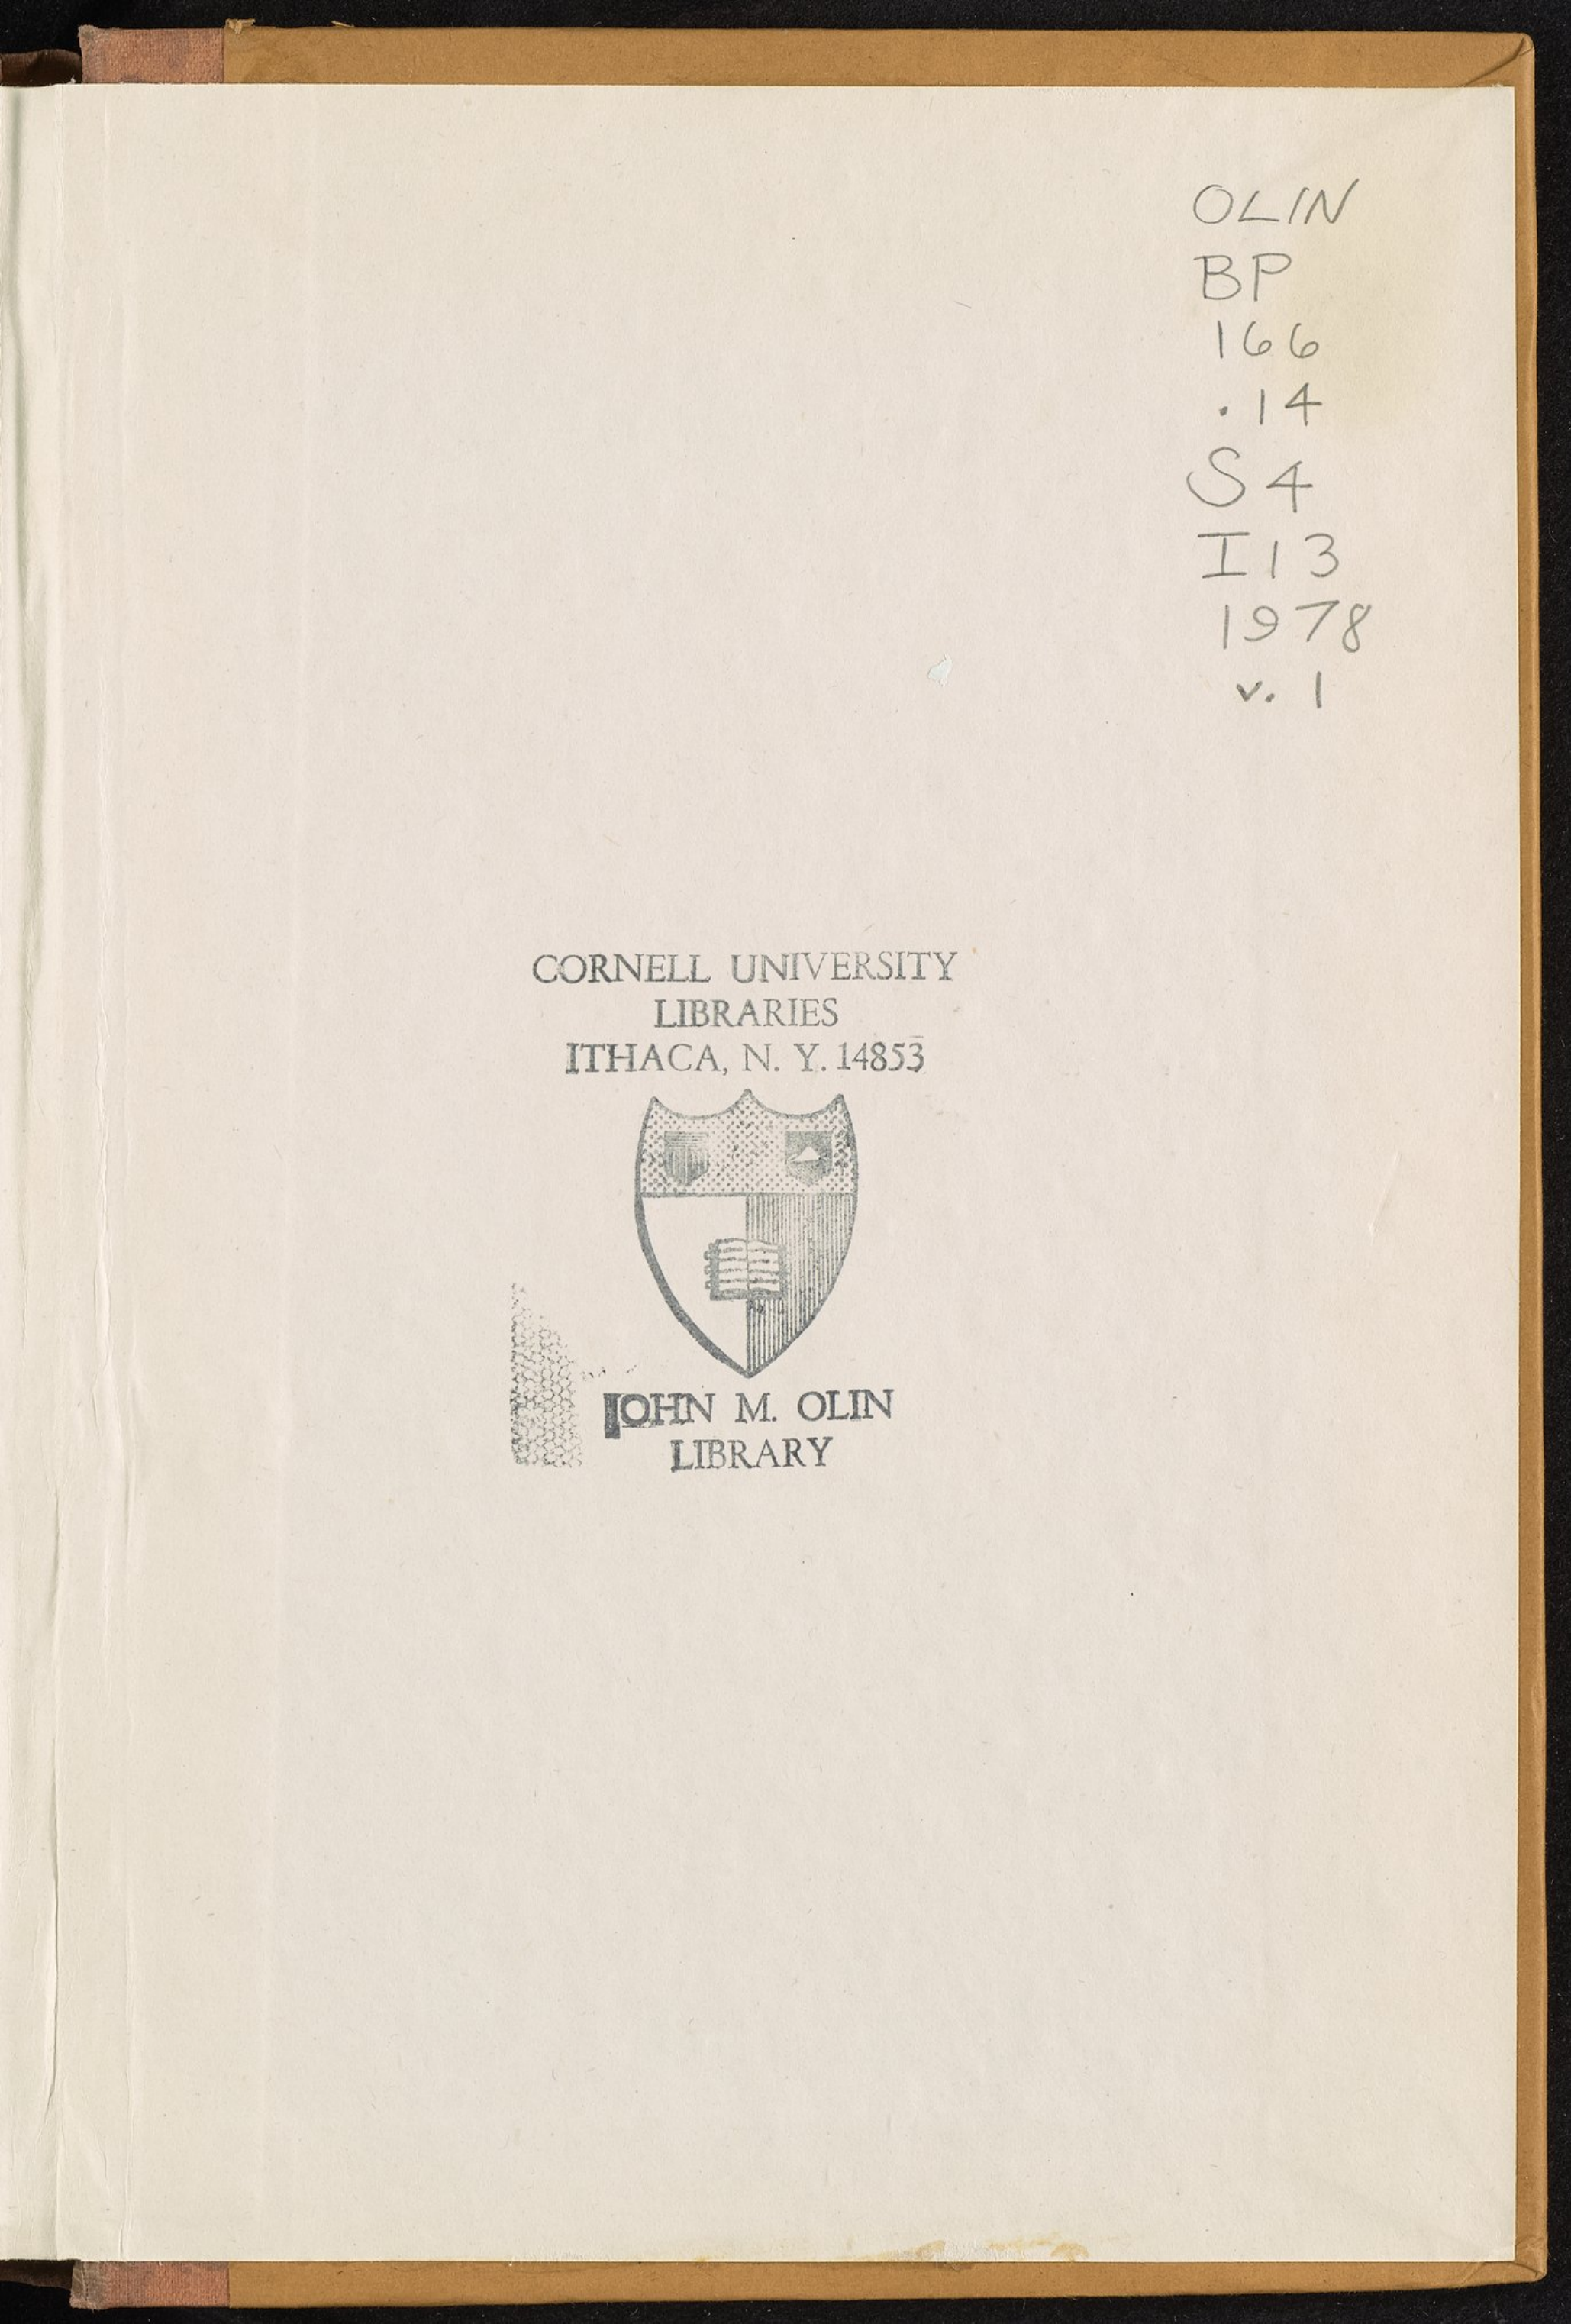 OLIN
BP
166
.14
S4
I13
1978
v. 1
CORNELL UNIVERSITY
LIBRARIES
ITHACA, N. Y. 14853
JOHN M. OLIN
LIBRARY